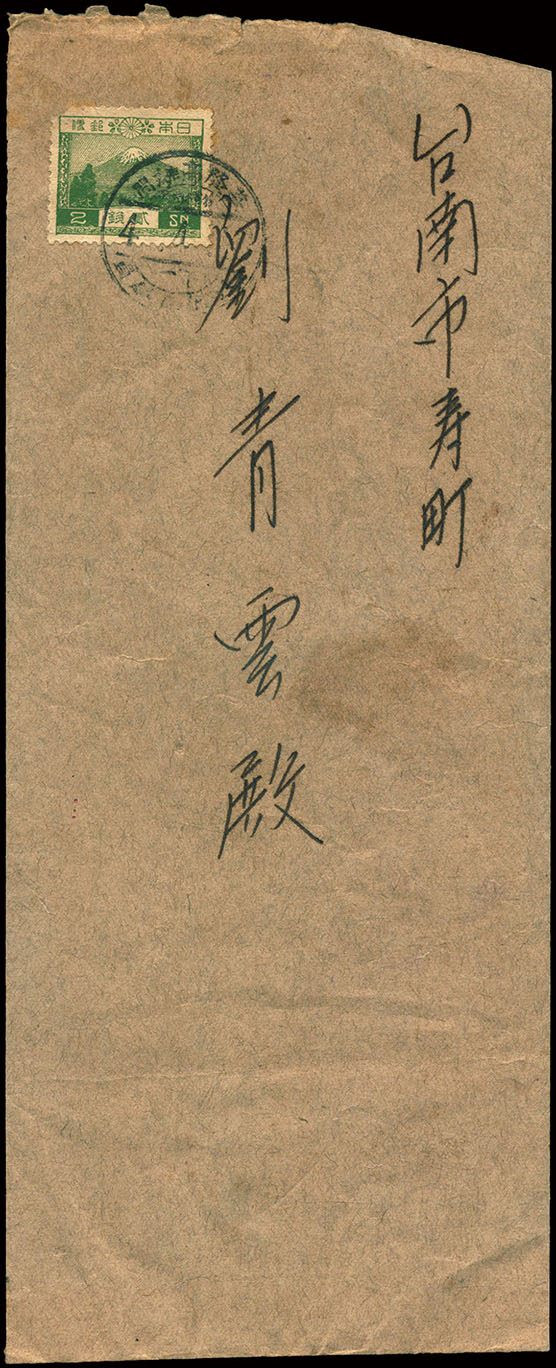 台南市寿町
劉青雲殿
日本郵便
2 貳銭 SN